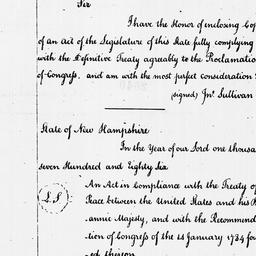 Sir
I have the Honor of enclosing Cop
of an Act of the Legislature of this State fully complying
with the Definitive Treaty agreably to the Proclamatio
of Congress, and am with the most perfect consideration
(signed) Jnº. Sullivan
State of New Hampshire
In the Year of our Lord one thousa
seven Hundred and Eighty Six
L.S
An Act in Compliance with the Treaty of
Peace between the United States and his B
annic Majesty, and with the Recommend
tion of Congress of the 14 January 1784 for
ed thereon